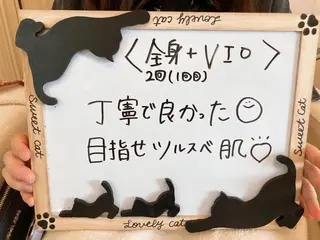 Lovely cat
<全身+VIO>
2回(1回目)
丁寧で良かった☺
目指せツルスベ肌♡
Sweet cat
Sweet Cat
Lovely cat